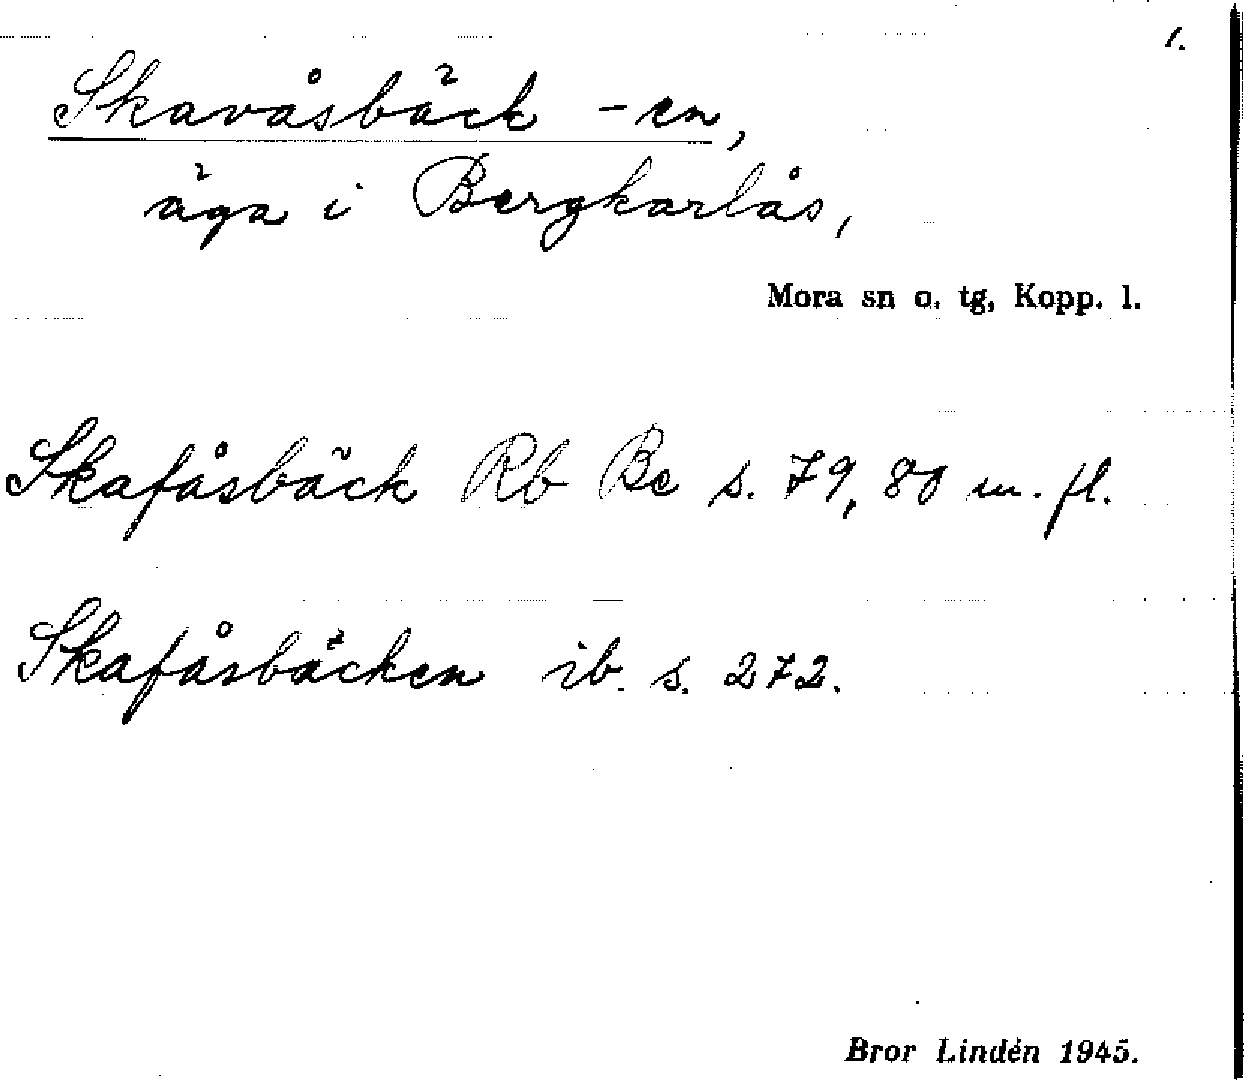 1.
Skavåsbäck -en,
äga i Bergkarlås,
Mora sn o. tg, Kopp. l.
Skafåsbäck Rb Bc s. 79, 80 m. fl.
Skafåsbäcken ib. s. 272.
Bror Lindén 1945.